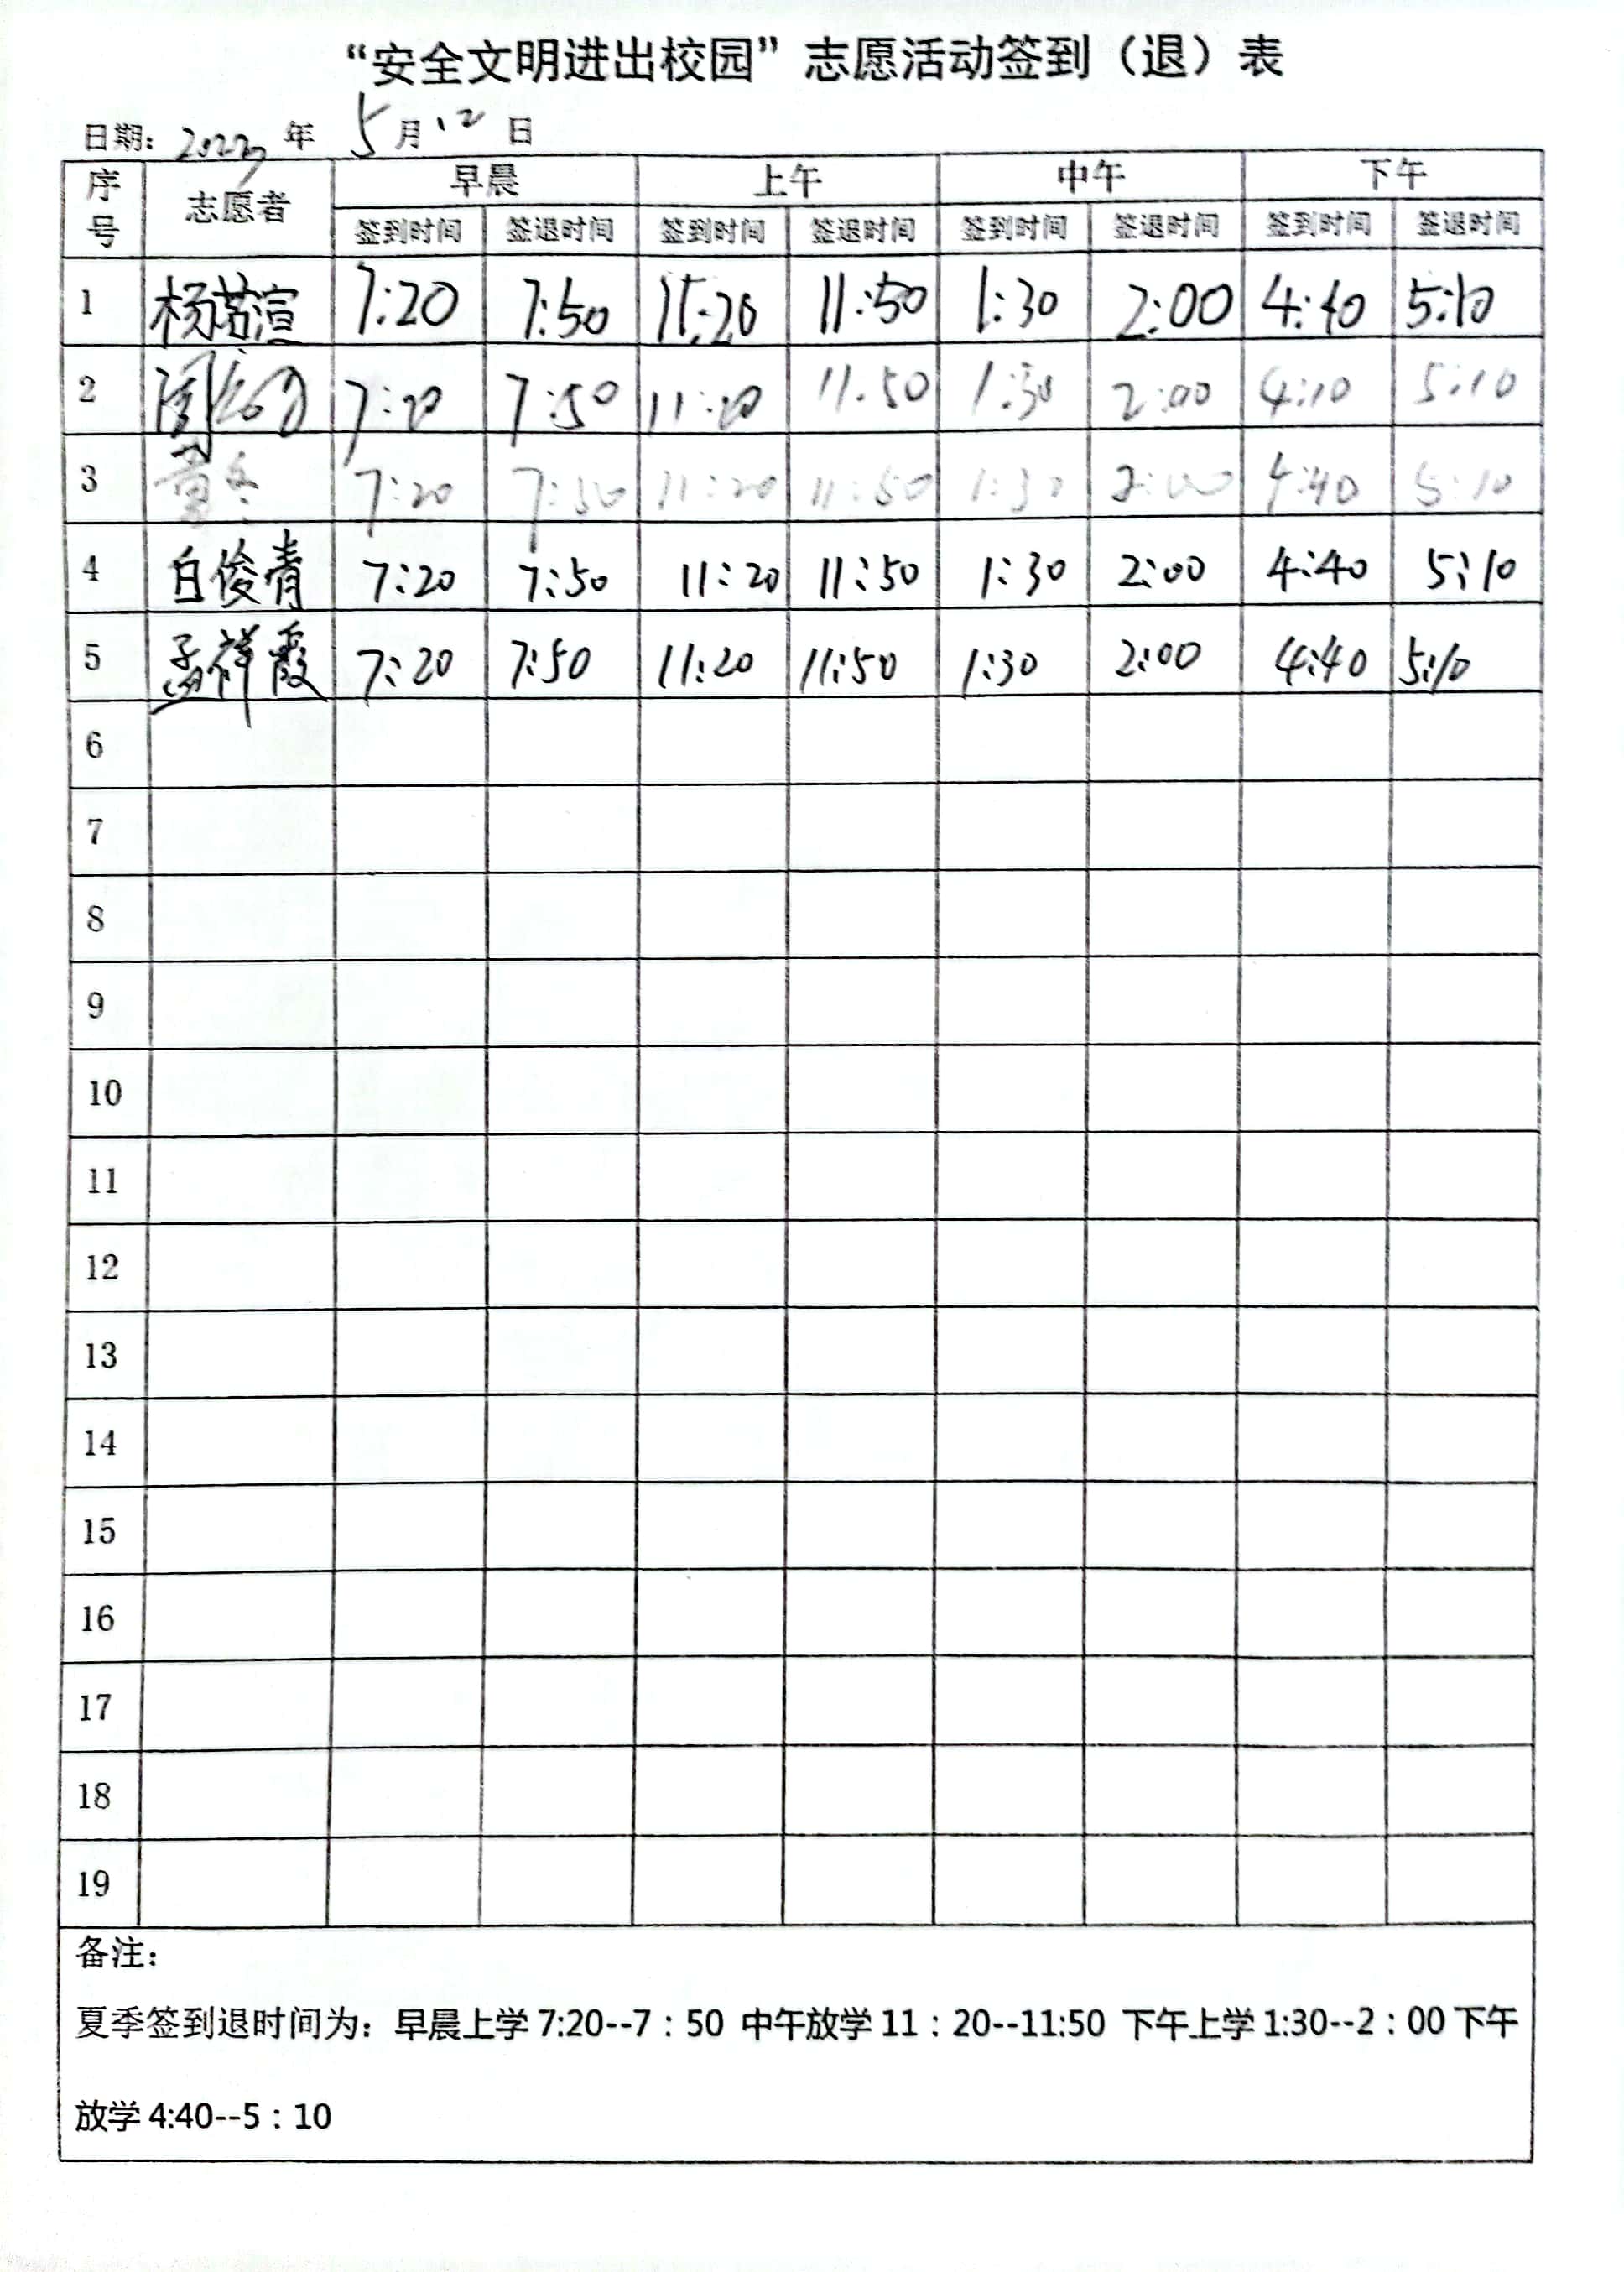 “安全文明进出校园”志愿活动签到（退）表
日期： 2023 年 5 月 12 日
序号 志愿者 早晨 上午 中午 下午
签到时间 签退时间 签到时间 签退时间 签到时间 签退时间 签到时间 签退时间
1 杨诺渲 7:20 7:50 11:20 11:50 1:30 2:00 4:40 5:10
2 周 7:20 7:50 11:20 11:50 1:30 2:00 4:10 5:10
3 董冬 7:20 7:50 11:20 11:50 1:30 2:00 4:40 5:10
4 白俊青 7:20 7:50 11:20 11:50 1:30 2:00 4:40 5:10
5 孟祥霞 7:20 7:50 11:20 11:50 1:30 2:00 4:40 5:10
6
7
8
9
10
11
12
13
14
15
16
17
18
19
备注：
夏季签到退时间为：早晨上学 7:20--7：50 中午放学 11：20--11:50 下午上学 1:30--2：00 下午
放学 4:40--5：10